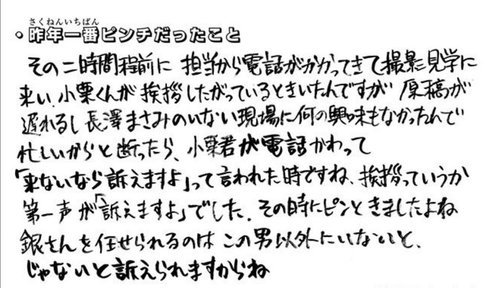 さくねんいちばん
・昨年一番ピンチだったこと
その二時間程前に 担当から電話がかかってきて撮影見学に
来い、小栗くんが挨拶したがっているときいたんですが 原稿が
遅れるし長澤まさみのいない現場に何の興味もなかったんで
忙しいからと断ったら、小栗君が電話かわって
「来ないなら訴えますよ」って言われた時ですね、挨拶っていうか
第一声が「訴えますよ」でした。その時にピンときましたよね
銀さんを任せられるのは この男以外にいないと、
じゃないと訴えられますからね